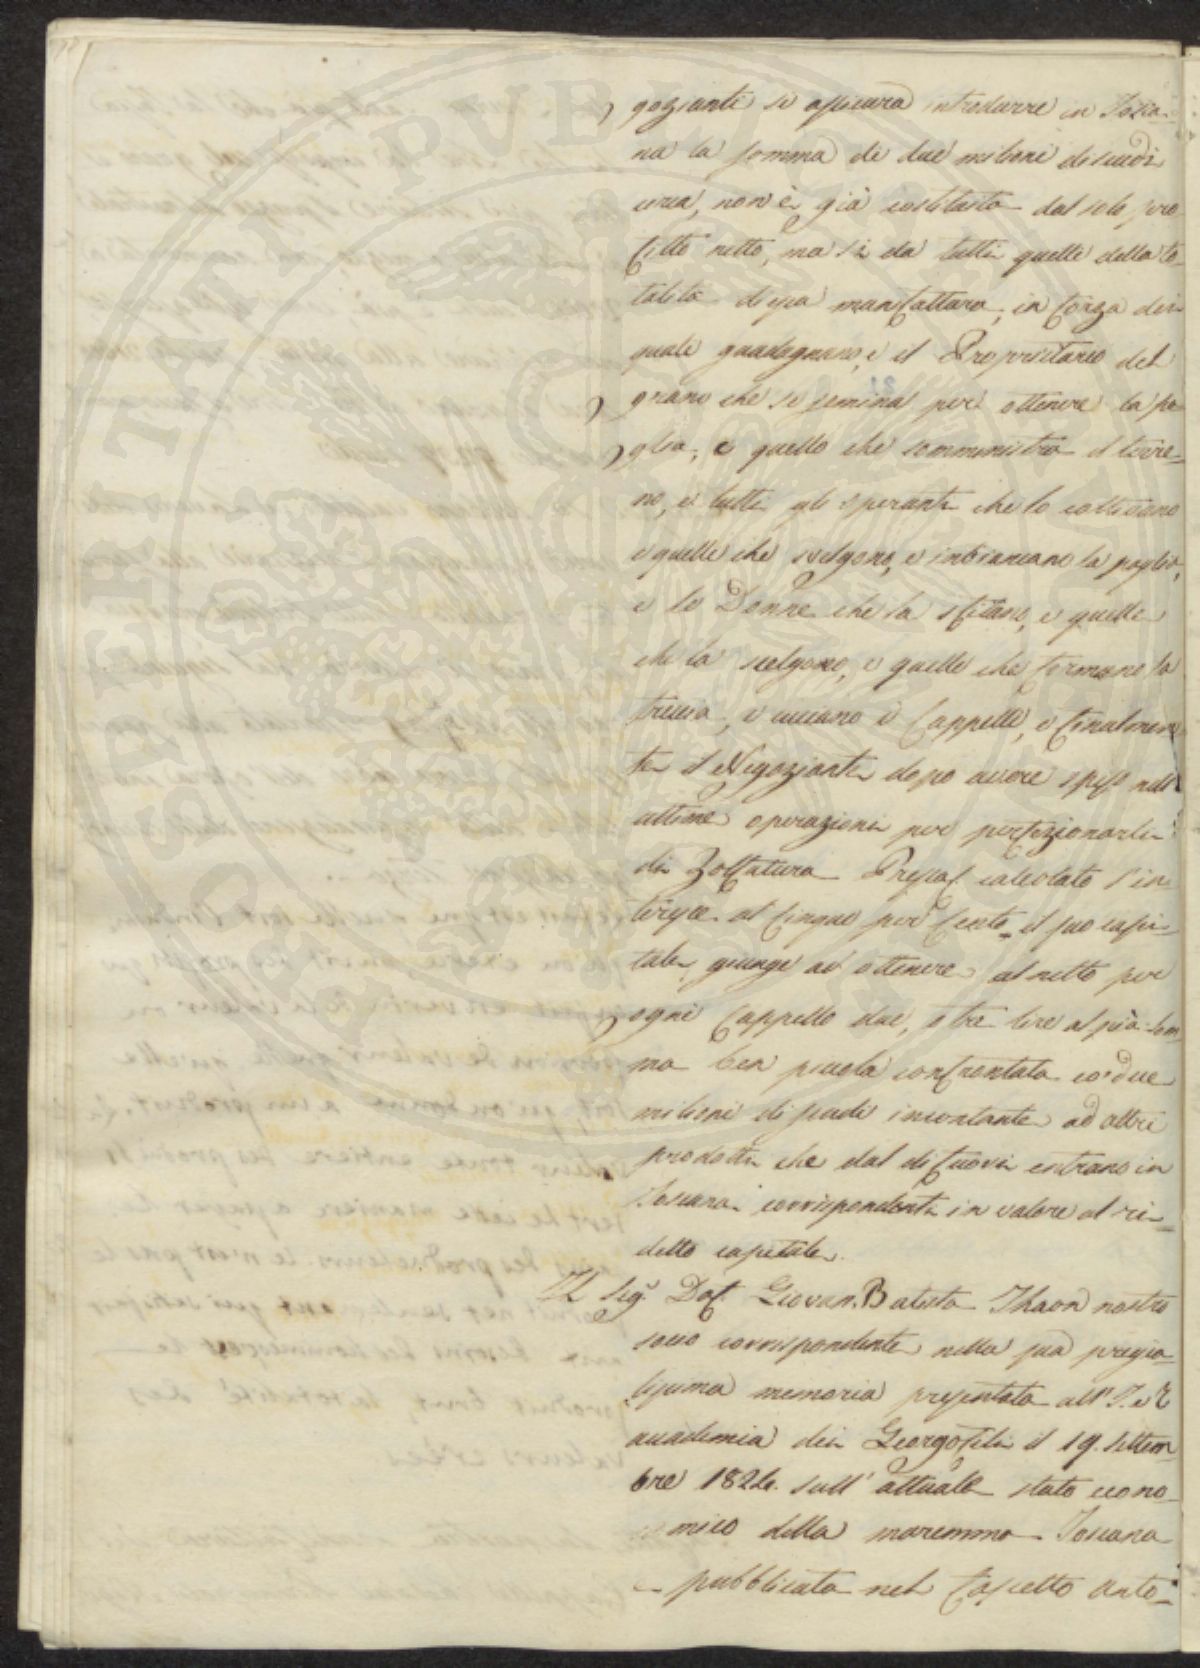 goziante si assicura introdurre in Tosca-
na la somma di due milioni di scudi
circa, non è già costituita dal solo pro-
fitto netto, ma sì da tutti quelli della to-
talità di essa manifattura, in forza dei
quali guadagnano, e il Proprietario del
grano che si semina per ottenere la pa-
glia, e quello che somministra il terre-
no, e tutti gli operanti che lo coltivano
e quelli che svelgono, e imbiancano la paglia,
e le Donne che la sfilano, e quelle
che la scelgono, e quelle che formano la
treccia, e cuciano i Cappelli, e finalmen-
te il Negoziante dopo avere speso nell'
ultime operazioni per perfezionarli
di Zolfatura calcolato l'in-
teresse al Cinque per Cento il suo capi-
tale, giunge ad ottenere al netto per
ogni Cappello due, o tre lire al più som-
ma ben piccola confrontata co' due
milioni di scudi incontante ad altri
prodotti che dal di fuori entrano in
Toscana corrispondenti in valore al ri-
detto capitale.
Il Sig.r Dot. Giovan. Batista Thaon nostro
socio corrispondente nella sua pregia-
tissima memoria presentata all' I. e R
accademia dei Georgofili il 19. Settem-
bre 1824. sull' attuale stato econo-
mico della maremma Toscana
pubblicata nel fascetto anto-
PROSPERITATI PVBLICAE